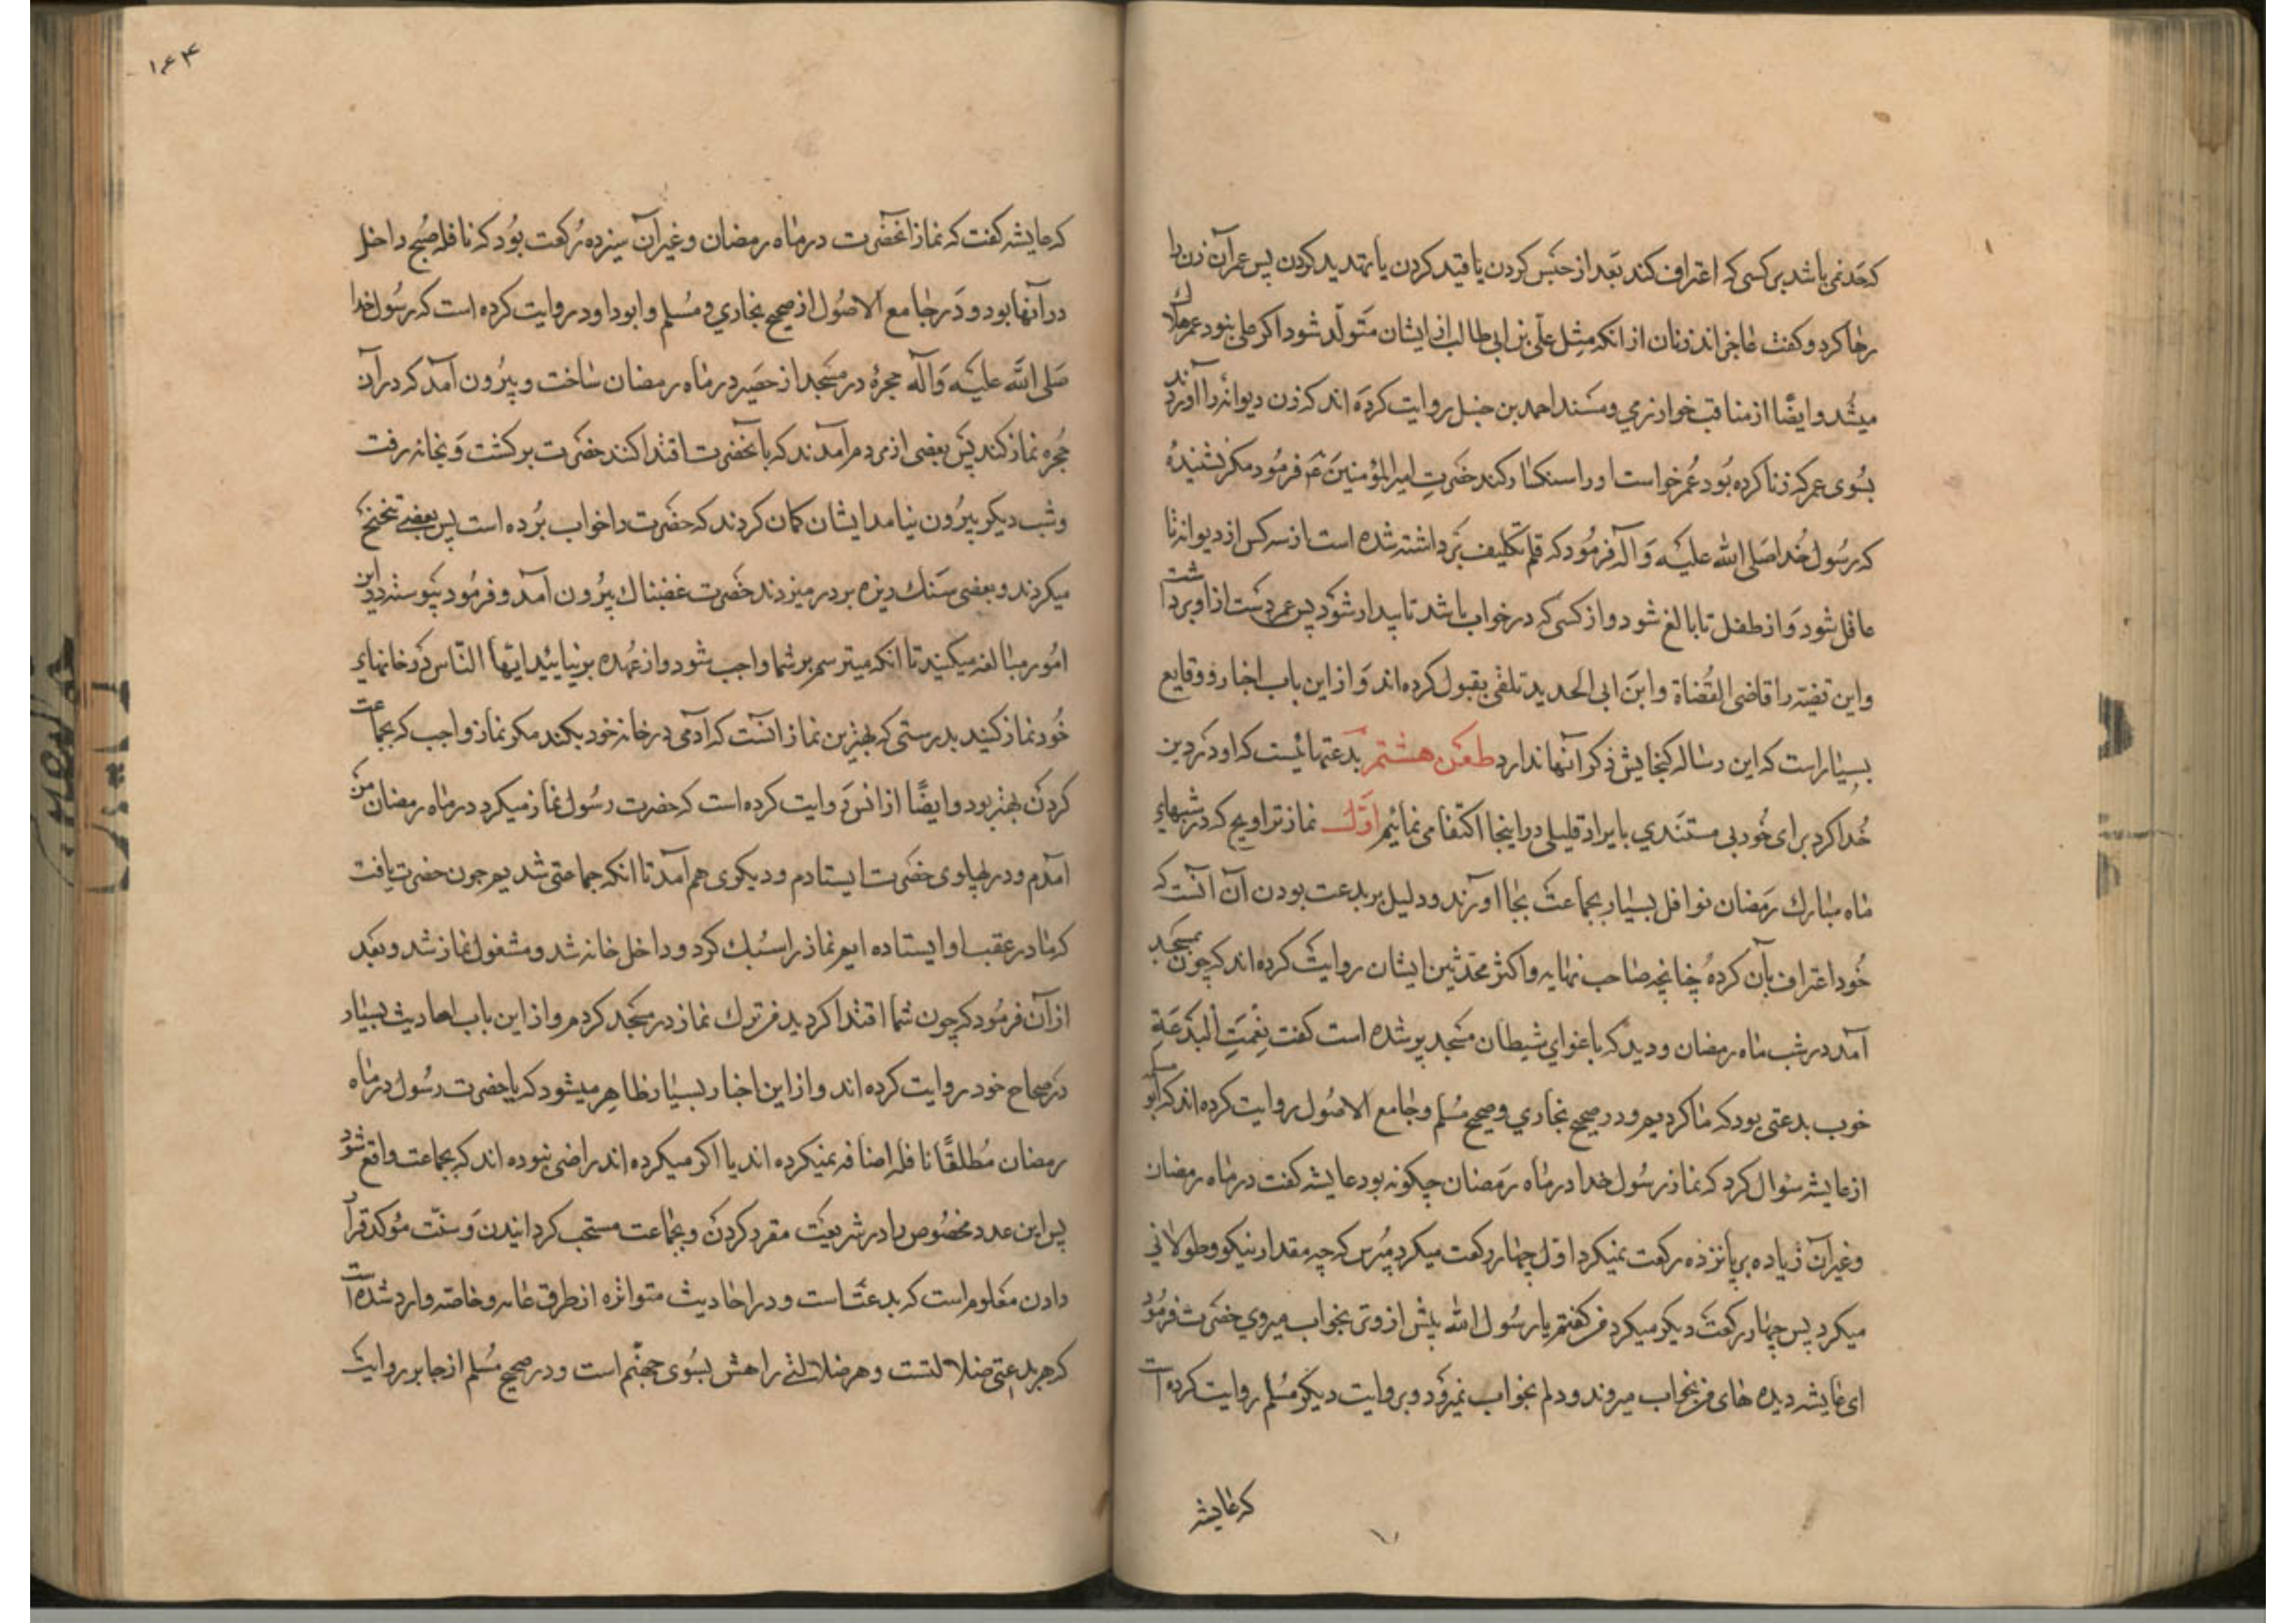 که حد نمی باشد بر کسی که اعتراف کند بعد از حبس کردن یا قید کردن یا تهدید کردن پس عمر آن زن را
رها کرد و گفت عاجز اند زنان از آنکه مثل علی بن ابی طالب از ایشان متولد شود اگر علی نبود عمر هلاک
میشد و ایضًا از مناقب خوارزمی و مسند احمد بن حنبل روایت کرده اند که زن دیوانه را آوردند
بسوی عمر که زنا کرده بود عمر خواست او را سنکسار کند حضرت امیرالمؤمنین ع م فرمود مکر نشنیدهٔ
که رسول خدا صلی الله علیه و آله فرمود که قلم تکلیف برداشته شده است از سه کس از دیوانه تا
عاقل شود و از طفل تا بالغ شود و از کسی که در خواب باشد تا بیدار شود پس عمر دست از او برداشت
و این قضیه را قاضی القضاة و ابن ابی الحدید تلقی بقبول کرده اند و از این باب اخبار و وقایع
بسیار است که این رساله کنجایش ذکر آنها ندارد طعن هشتم بدعتهائیست که او در دین
خدا کرد برای خود بی مستندی بایراد قلیلی در اینجا اکتفا می نمائیم اوّل نماز تراویح که در شبهای
ماه مبارک رمضان نوافل بسیار بجماعت بجا آورند و دلیل بر بدعت بودن آن آنست که
خود اعتراف بآن کرده چنانچه صاحب نهایه و اکثر محدثین ایشان روایت کرده اند که چون بمسجد
آمد در شب ماه رمضان و دید که باغوای شیطان مسجد پر شده است گفت نِعْمَتِ الْبِدْعَةِ
خوب بدعتی بود که ما کردیم و در صحیح بخاری و صحیح مسلم و جامع الاصول روایت کرده اند که ابو سلمه
از عایشه سئوال کرد که نماز رسول خدا در ماه رمضان چکونه بود عایشه گفت در ماه رمضان
و غیر آن زیاده بر پانزده رکعت نمیکرد اول چهار رکعت میکرد مپرس که چه مقدار نیکو و طولانی
میکرد پس چهار رکعت دیکر میکرد من گفتم یا رسول الله پیش از وتر بخواب میروی حضرت فرمود
ای عایشه دیده های من بخواب میروند و دلم بخواب نمیرود و بروایت دیکر مسلم روایت کرده است
که عایشه
۱۶۴
که عایشه گفت که نماز آنحضرت در ماه رمضان و غیر آن سیزده رکعت بود که نافله صبح داخل
در آنها بود و در جامع الاصول از صحیح بخاری و مسلم و ابوداود روایت کرده است که رسول خدا
صلی الله علیه و آله حجرهٔ در مسجد از حصیر در ماه رمضان ساخت و بیرون آمد که در آن
حجره نماز کند پس بعضی از مردم آمدند که بآنحضرت اقتدا کنند حضرت برکشت و بخانه رفت
و شب دیکر بیرون نیامد ایشان کمان کردند که حضرت را خواب برده است پس بعضی تنحنح
میکردند و بعضی سنک ریزه بر در میزدند حضرت غضبناک بیرون آمد و فرمود پیوسته در این
امور مبالغه میکنید تا انکه میترسم بر شما واجب شود و از عهده بر نیایید ایها الناس در خانهای
خود نماز کنید بدرستی که بهترین نماز آنست که آدمی در خانه خود بکند مکر نماز واجب که بجماعت
کردن بهتر بود و ایضًا از انس روایت کرده است که حضرت رسول نماز میکرد در ماه رمضان من
آمدم و در پهلوی حضرت ایستادم و دیکری هم آمد تا انکه جماعتی شدیم چون حضرت یافت
که ما در عقب او ایستاده ایم نماز را سبک کرد و داخل خانه شد و مشغول نماز شد و بعد
از آن فرمود که چون شما اقتدا کردید من ترک نماز در مسجد کردم و از این باب احادیث بسیار
در صحاح خود روایت کرده اند و از این اخبار بسیار ظاهر میشود که یا حضرت رسول در ماه
رمضان مطلقًا نافله اضافه نمیکرده اند یا اکر میکرده اند راضی نبوده اند که بجماعت واقع شود
پس این عدد مخصوص را در شریعت مقرر کردن و بجماعت مستحب کردانیدن و سنّت موکد قرار
دادن معلوم است که بدعت است و در احادیث متواتره از طرق عامه و خاصه وارد شده است
که هر بدعتی ضلالتست و هر ضلالتی راهش بسوی جهنّم است و در صحیح مسلم از جابر روایت